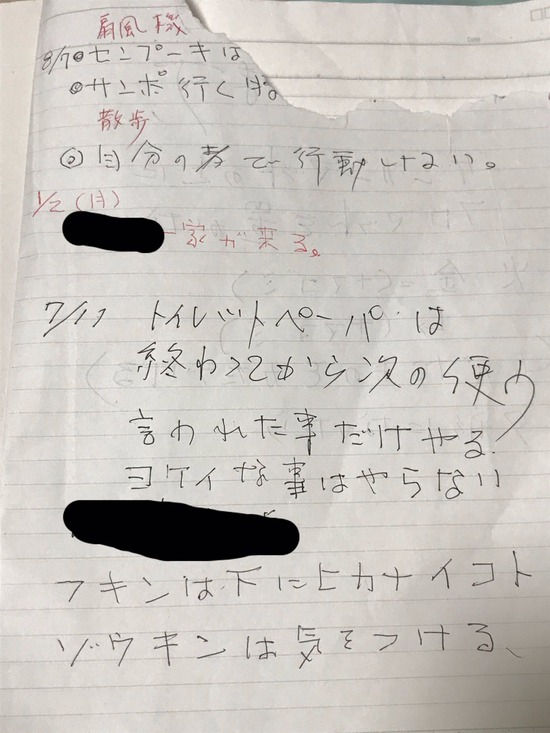 扇風機
8/7◎センプーキは
◎サンポ行くは。
散歩
◎自分の考で行動しない。
1/2(月)
一家が来る。
7/17 トイレットペーパーは
終わってから次の使う
言われた事だけやる。
ヨケイな事はやらない
フキンは下にヒカナイコト
ゾウキンは気をつける、